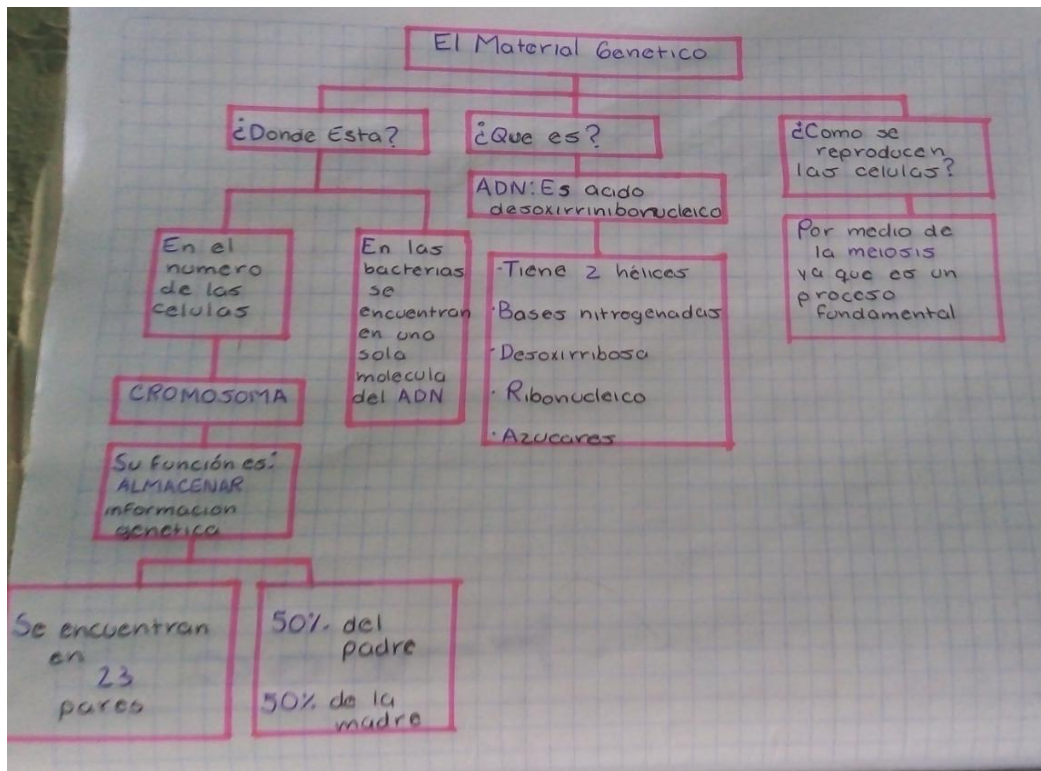 El Material Genetico
¿Donde Esta?
En el
numero
de las
celulas
CROMOSOMA
Su función es:
ALMACENAR
informacion
genetica
Se encuentran
en
23
pares
50% del
padre
50% de la
madre
En las
bacterias
se
encuentran
en una
sola
molecula
del ADN
¿Que es?
ADN: Es acido
desoxirriniborucleico
·Tiene 2 hélices
·Bases nitrogenadas
·Desoxirribosa
·Ribonucleico
·Azucares
¿Como se
reproducen
las celulas?
Por medio de
la meiosis
ya que es un
proceso
fundamental